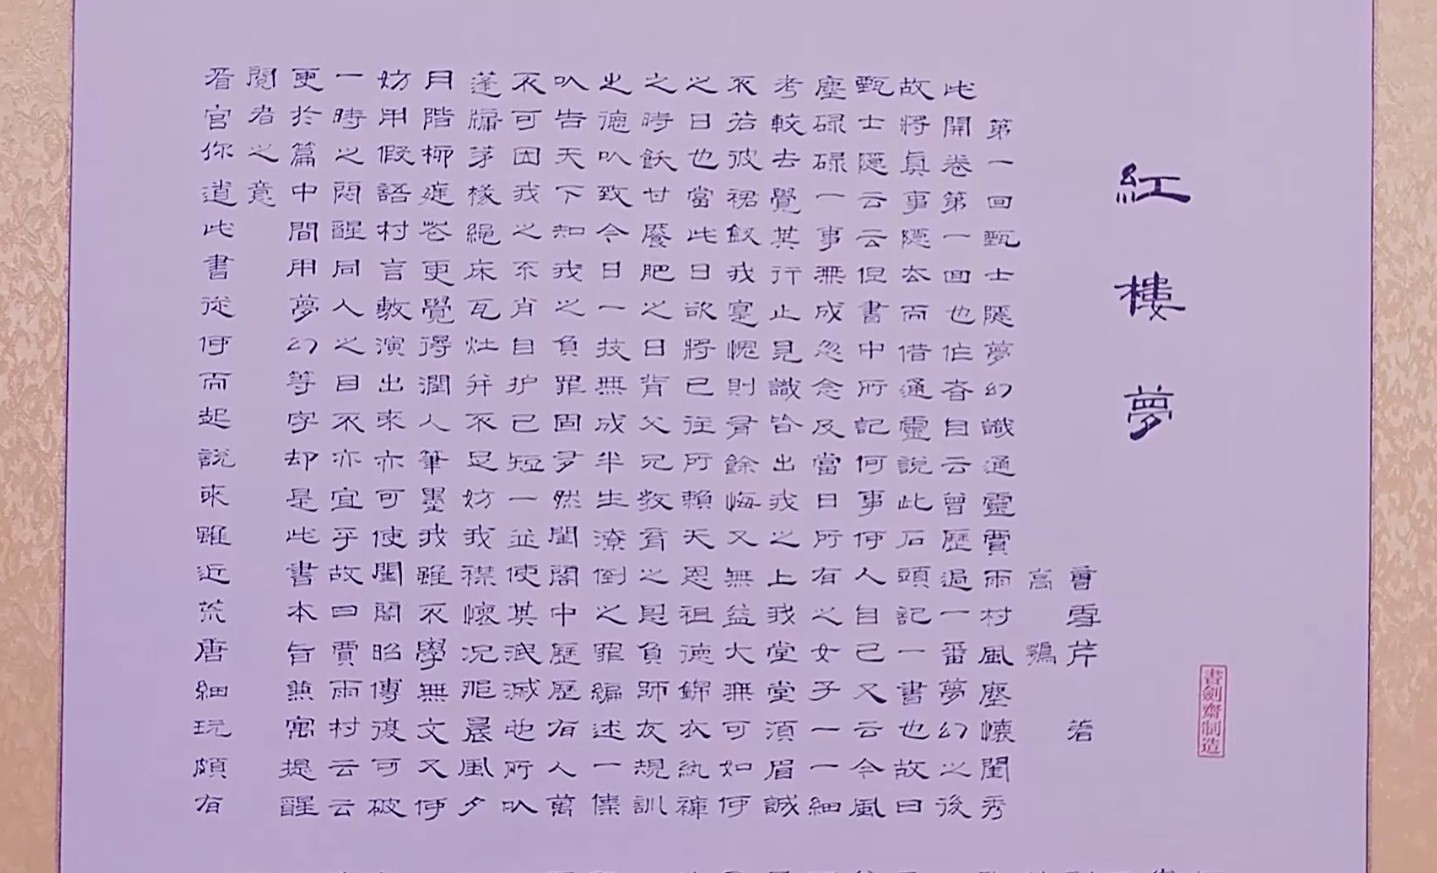 紅樓夢
曹雪芹 著
高鶚
第一回甄士隱夢幻識通靈賈雨村風塵懷閨秀
此開卷第一回也作者自云曾歷過一番夢幻之後
故將真事隱去而借通靈說此石頭記一書也故曰
甄士隱云云但書中所記何事何人自己又云今風
塵碌碌一事無成忽念及當日所有之女子一一細
考較去覺其行止見識皆出我之上我堂堂須眉誠
不若彼裙釵我寔愧則有餘悔又無益大無可如何
之日也當此日欲將已往所賴天恩祖德錦衣紈褲
之時飫甘饜肥之日背父兄教育之恩負師友規訓
之德以致今日一技無成半生潦倒之罪編述一集
以告天下知我之負罪固多然閨閣中歷歷有人萬
不可因我之不肖自护己短一並使其泯滅也所以
蓬牖茅椽繩床瓦灶并不足妨我襟懷況那晨風夕
月階柳庭花更覺得潤人筆墨我雖不學無文又何
妨用假語村言敷演出來亦可使閨閣昭傳復可破
一時之悶醒同人之目不亦宜乎故曰賈雨村云云
更於篇中間用夢幻等字却是此書本旨兼寓提醒
閱者之意
看官你道此書從何而起說來雖近荒唐細玩頗有
書劍齋制造